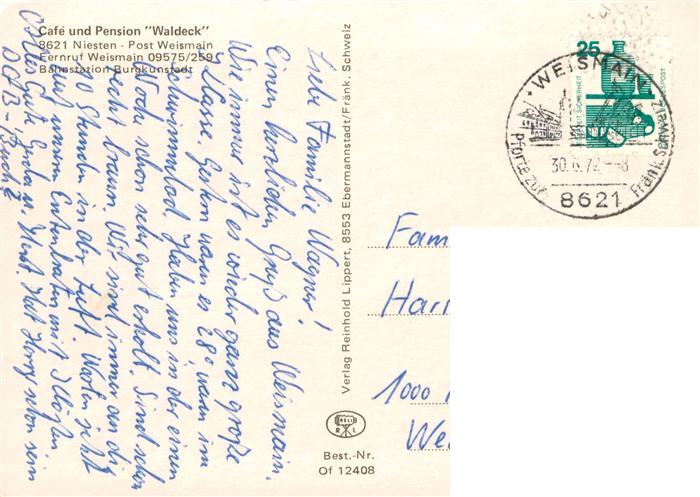 Café und Pension "Waldeck"
8621 Niesten - Post Weismain
Fernruf Weismain 09575/259
Bahnstation Burgkunstadt
Liebe Familie Wagner!
Einen herzlichen Gruß aus Weismain.
Wie immer ist es wieder ganz große
Klasse. Gestern waren es 28° warm im
Schwimmbad. Haben uns in der einen
Woche schon sehr gut erholt. Sind schon
recht braun. Wir sind immer an die
10 Stunden in der Luft. Warten jetzt
auf unsern Entenbraten mit Klößen
Alles Gute Gerda u. Horst. Hat Harry schon sein
DGB-Buch?
Verlag Reinhold Lippert, 8553 Ebermannstadt/Fränk. Schweiz
RELI
R L
Best.-Nr.
Of 12408
25
WEISMAIN
Pforte zur Fränk. Schweiz
30.6.72-8
8621
Fam
Harr
1000
We